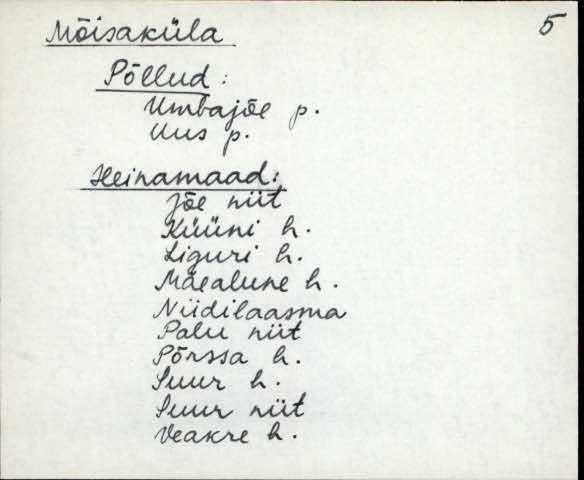 Mõisaküla 5
Põllud:
Umbajõe p.
Uus p.
Heinamaad:
Jõe niit
Küüni h.
Liguri h.
Mäealune h.
Niidilaasma
Palu niit
Põrssa h.
Suur h.
Suur niit
Veakre h.